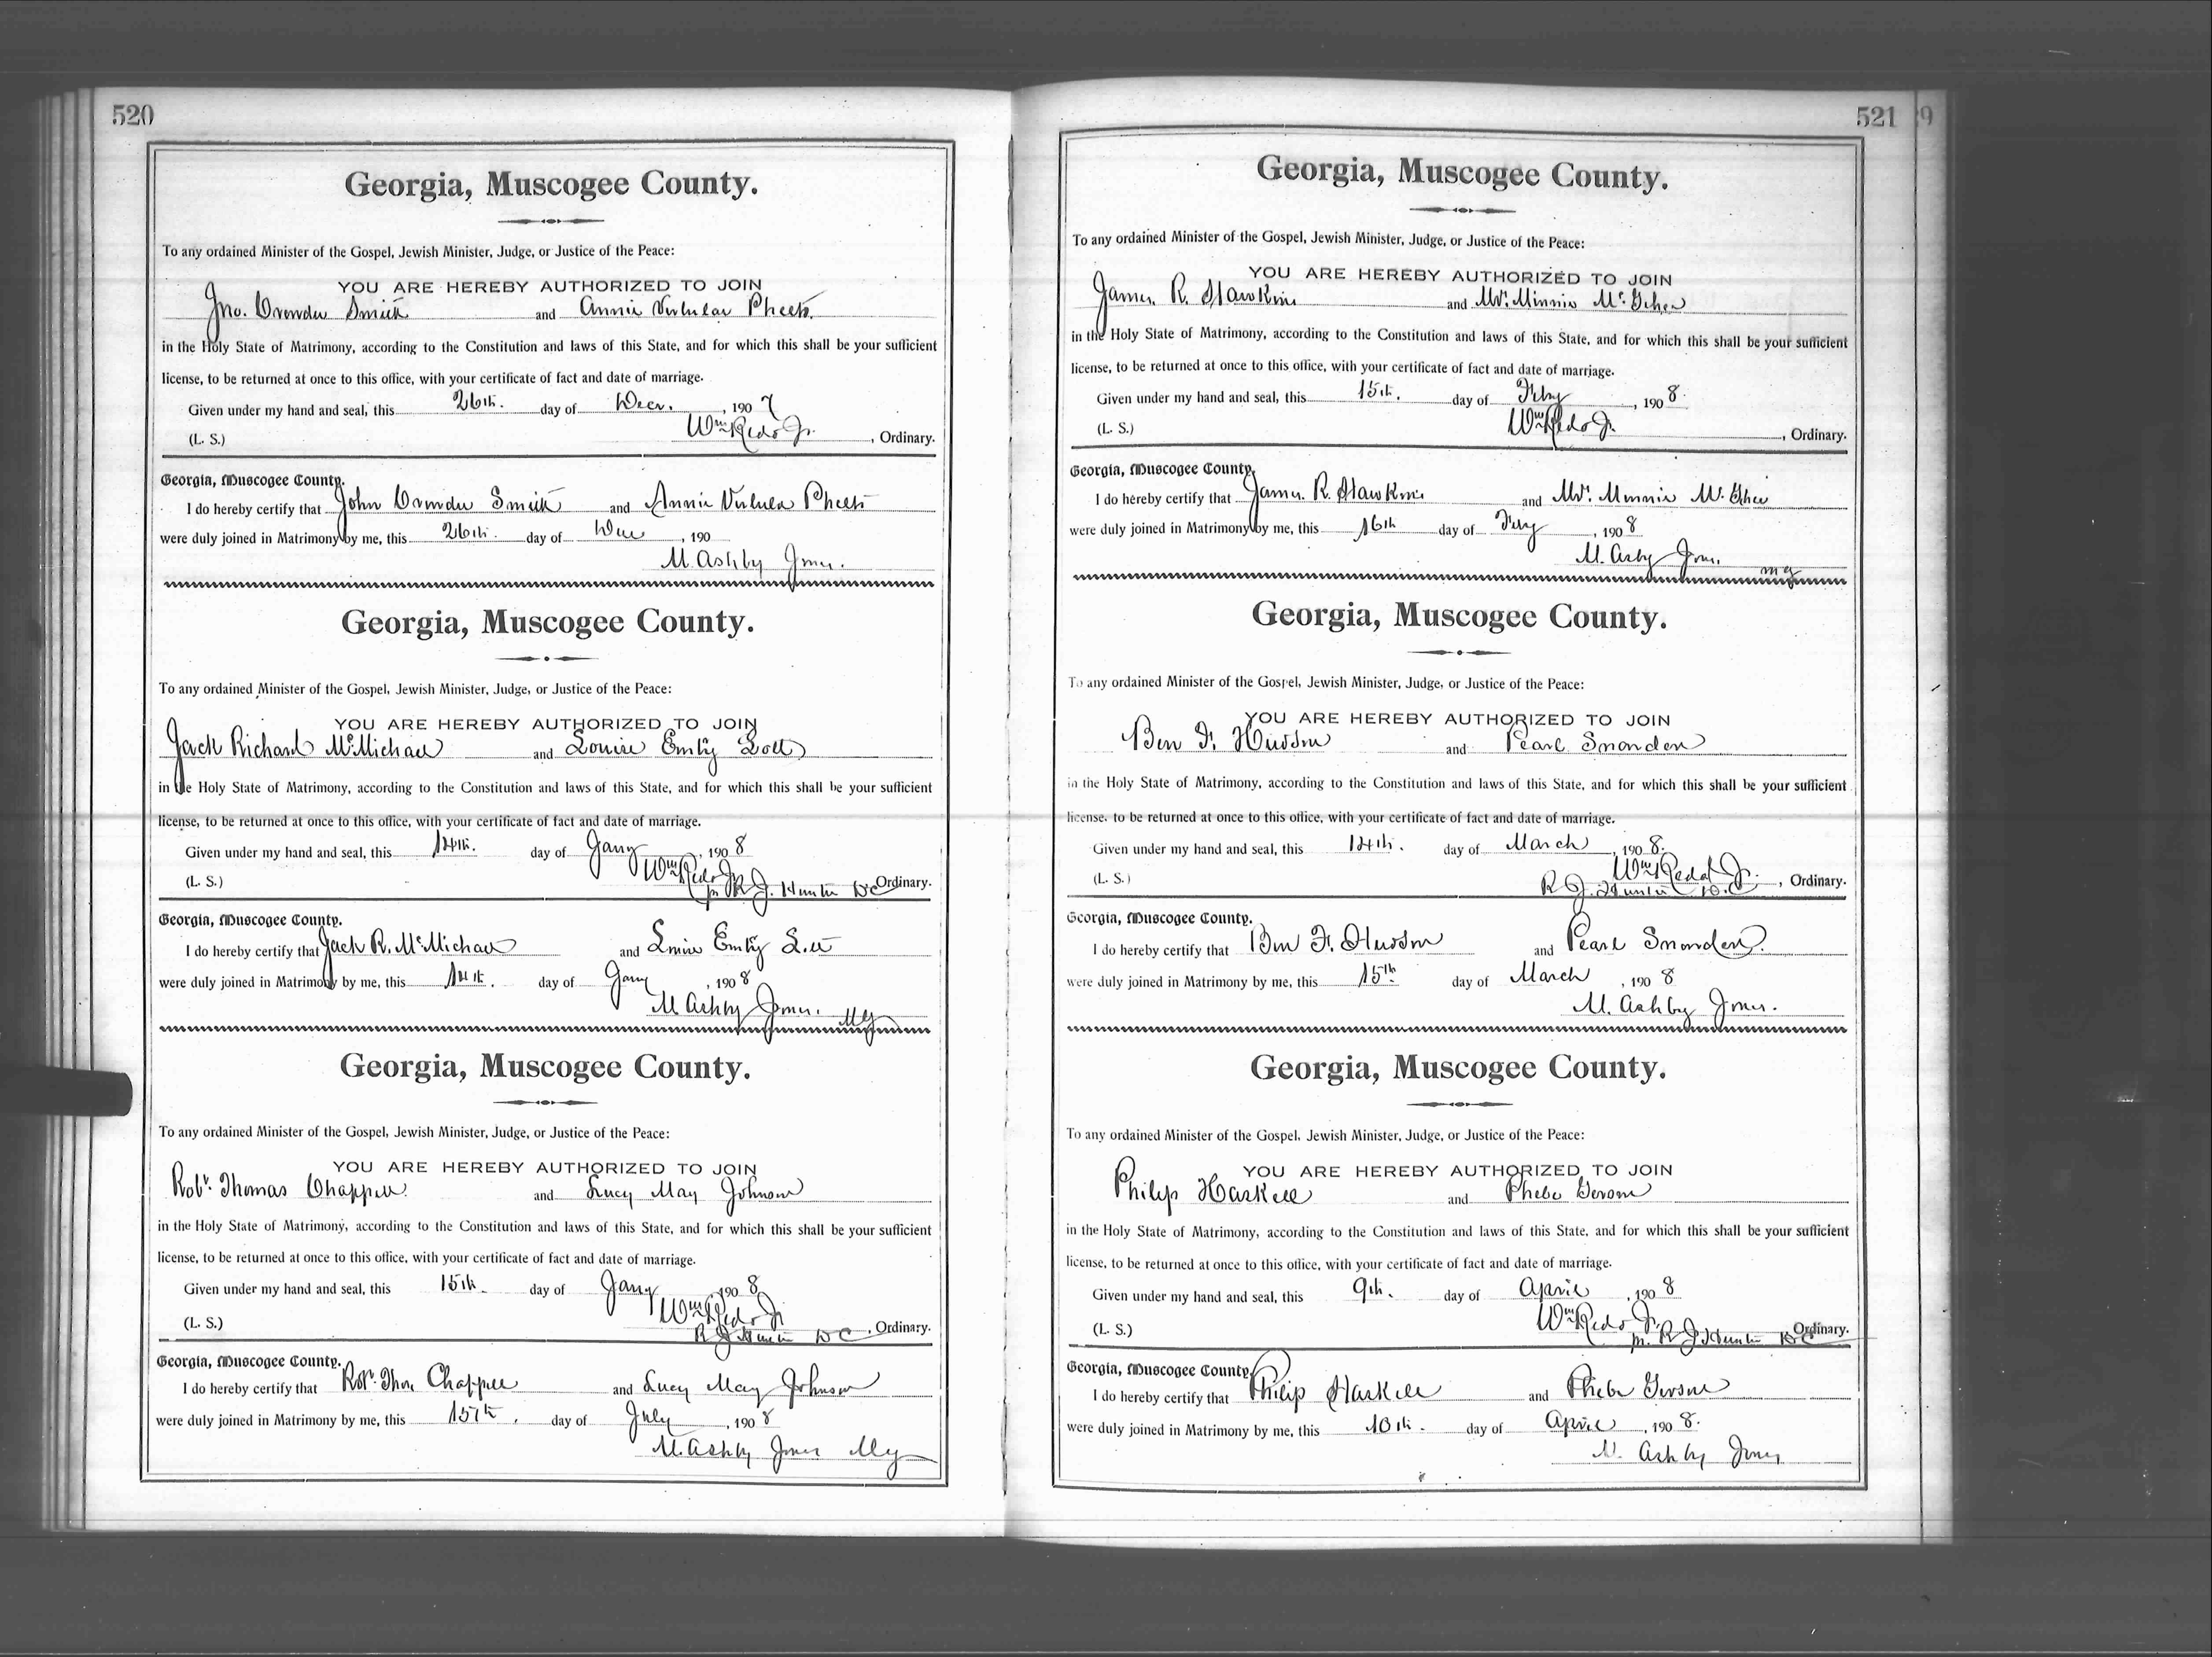 520
Georgia, Muscogee County.
To any ordained Minister of the Gospel, Jewish Minister, Judge, or Justice of the Peace:
YOU ARE HEREBY AUTHORIZED TO JOIN
Jno. Smith and Annie
in the Holy State of Matrimony, according to the Constitution and laws of this State, and for which this shall be your sufficient
license, to be returned at once to this office, with your certificate of fact and date of marriage.
Given under my hand and seal, this 26th. day of Decr. , 190 7
Wm Redd Jr.
(L. S.) , Ordinary.
Georgia, Muscogee County.
I do hereby certify that John Smith and Annie
were duly joined in Matrimony by me, this 26th. day of Dec , 190
M. Ashby Jones.
Georgia, Muscogee County.
To any ordained Minister of the Gospel, Jewish Minister, Judge, or Justice of the Peace:
YOU ARE HEREBY AUTHORIZED TO JOIN
Jack Richard McMichael and Louise Emily Lott
in the Holy State of Matrimony, according to the Constitution and laws of this State, and for which this shall be your sufficient
license, to be returned at once to this office, with your certificate of fact and date of marriage.
Given under my hand and seal, this 14th. day of Jany , 190 8
Wm Redd Jr
(L. S.) pr R. J. Hunter DC Ordinary.
Georgia, Muscogee County.
I do hereby certify that Jack R. McMichael and Emily
were duly joined in Matrimony by me, this 14th. day of Jany , 190 8
M Ashby Jones. Mg
Georgia, Muscogee County.
To any ordained Minister of the Gospel, Jewish Minister, Judge, or Justice of the Peace:
YOU ARE HEREBY AUTHORIZED TO JOIN
Robt. Thomas Chappell and Lucy May Johnson
in the Holy State of Matrimony, according to the Constitution and laws of this State, and for which this shall be your sufficient
license, to be returned at once to this office, with your certificate of fact and date of marriage.
Given under my hand and seal, this 15th. day of Jany , 190 8
Wm Redd Jr
(L. S.) R J Hunter D C , Ordinary.
Georgia, Muscogee County.
I do hereby certify that Robt. Thos. Chappell and Lucy May Johnson
were duly joined in Matrimony by me, this 15th. day of July , 190 8
M. Ashby Jones Mg
521
9
Georgia, Muscogee County.
To any ordained Minister of the Gospel, Jewish Minister, Judge, or Justice of the Peace:
YOU ARE HEREBY AUTHORIZED TO JOIN
James R. Hawkins and Mrs. Minnie McGehee
in the Holy State of Matrimony, according to the Constitution and laws of this State, and for which this shall be your sufficient
license, to be returned at once to this office, with your certificate of fact and date of marriage.
Given under my hand and seal, this 15th. day of Feby , 190 8.
Wm Redd Jr.
(L. S.) , Ordinary.
Georgia, Muscogee County.
I do hereby certify that James R. Hawkins and Mrs. Minnie McGhee
were duly joined in Matrimony by me, this 16th day of Feby , 190 8
M. Asby Jones. mg
Georgia, Muscogee County.
To any ordained Minister of the Gospel, Jewish Minister, Judge, or Justice of the Peace:
YOU ARE HEREBY AUTHORIZED TO JOIN
Ben F. Hudson and Pearl Snowden
in the Holy State of Matrimony, according to the Constitution and laws of this State, and for which this shall be your sufficient
license, to be returned at once to this office, with your certificate of fact and date of marriage.
Given under my hand and seal, this 14th. day of March , 190 8.
Wm Redd Jr.
(L. S.) R J. Hunter D.C. , Ordinary.
Georgia, Muscogee County.
I do hereby certify that Ben F. Hudson and Pearl Snowden.
were duly joined in Matrimony by me, this 15th day of March , 190 8
M. Ashby Jones.
Georgia, Muscogee County.
To any ordained Minister of the Gospel, Jewish Minister, Judge, or Justice of the Peace:
YOU ARE HEREBY AUTHORIZED TO JOIN
Philip Haskell and Phebe Gerson
in the Holy State of Matrimony, according to the Constitution and laws of this State, and for which this shall be your sufficient
license, to be returned at once to this office, with your certificate of fact and date of marriage.
Given under my hand and seal, this 9th. day of April , 190 8
Wm Redd Jr.
(L. S.) pr. R J Hunter DC Ordinary.
Georgia, Muscogee County.
I do hereby certify that Philip Haskell and Phebe Gerson
were duly joined in Matrimony by me, this 10th. day of April , 190 8.
M. Ashby Jones